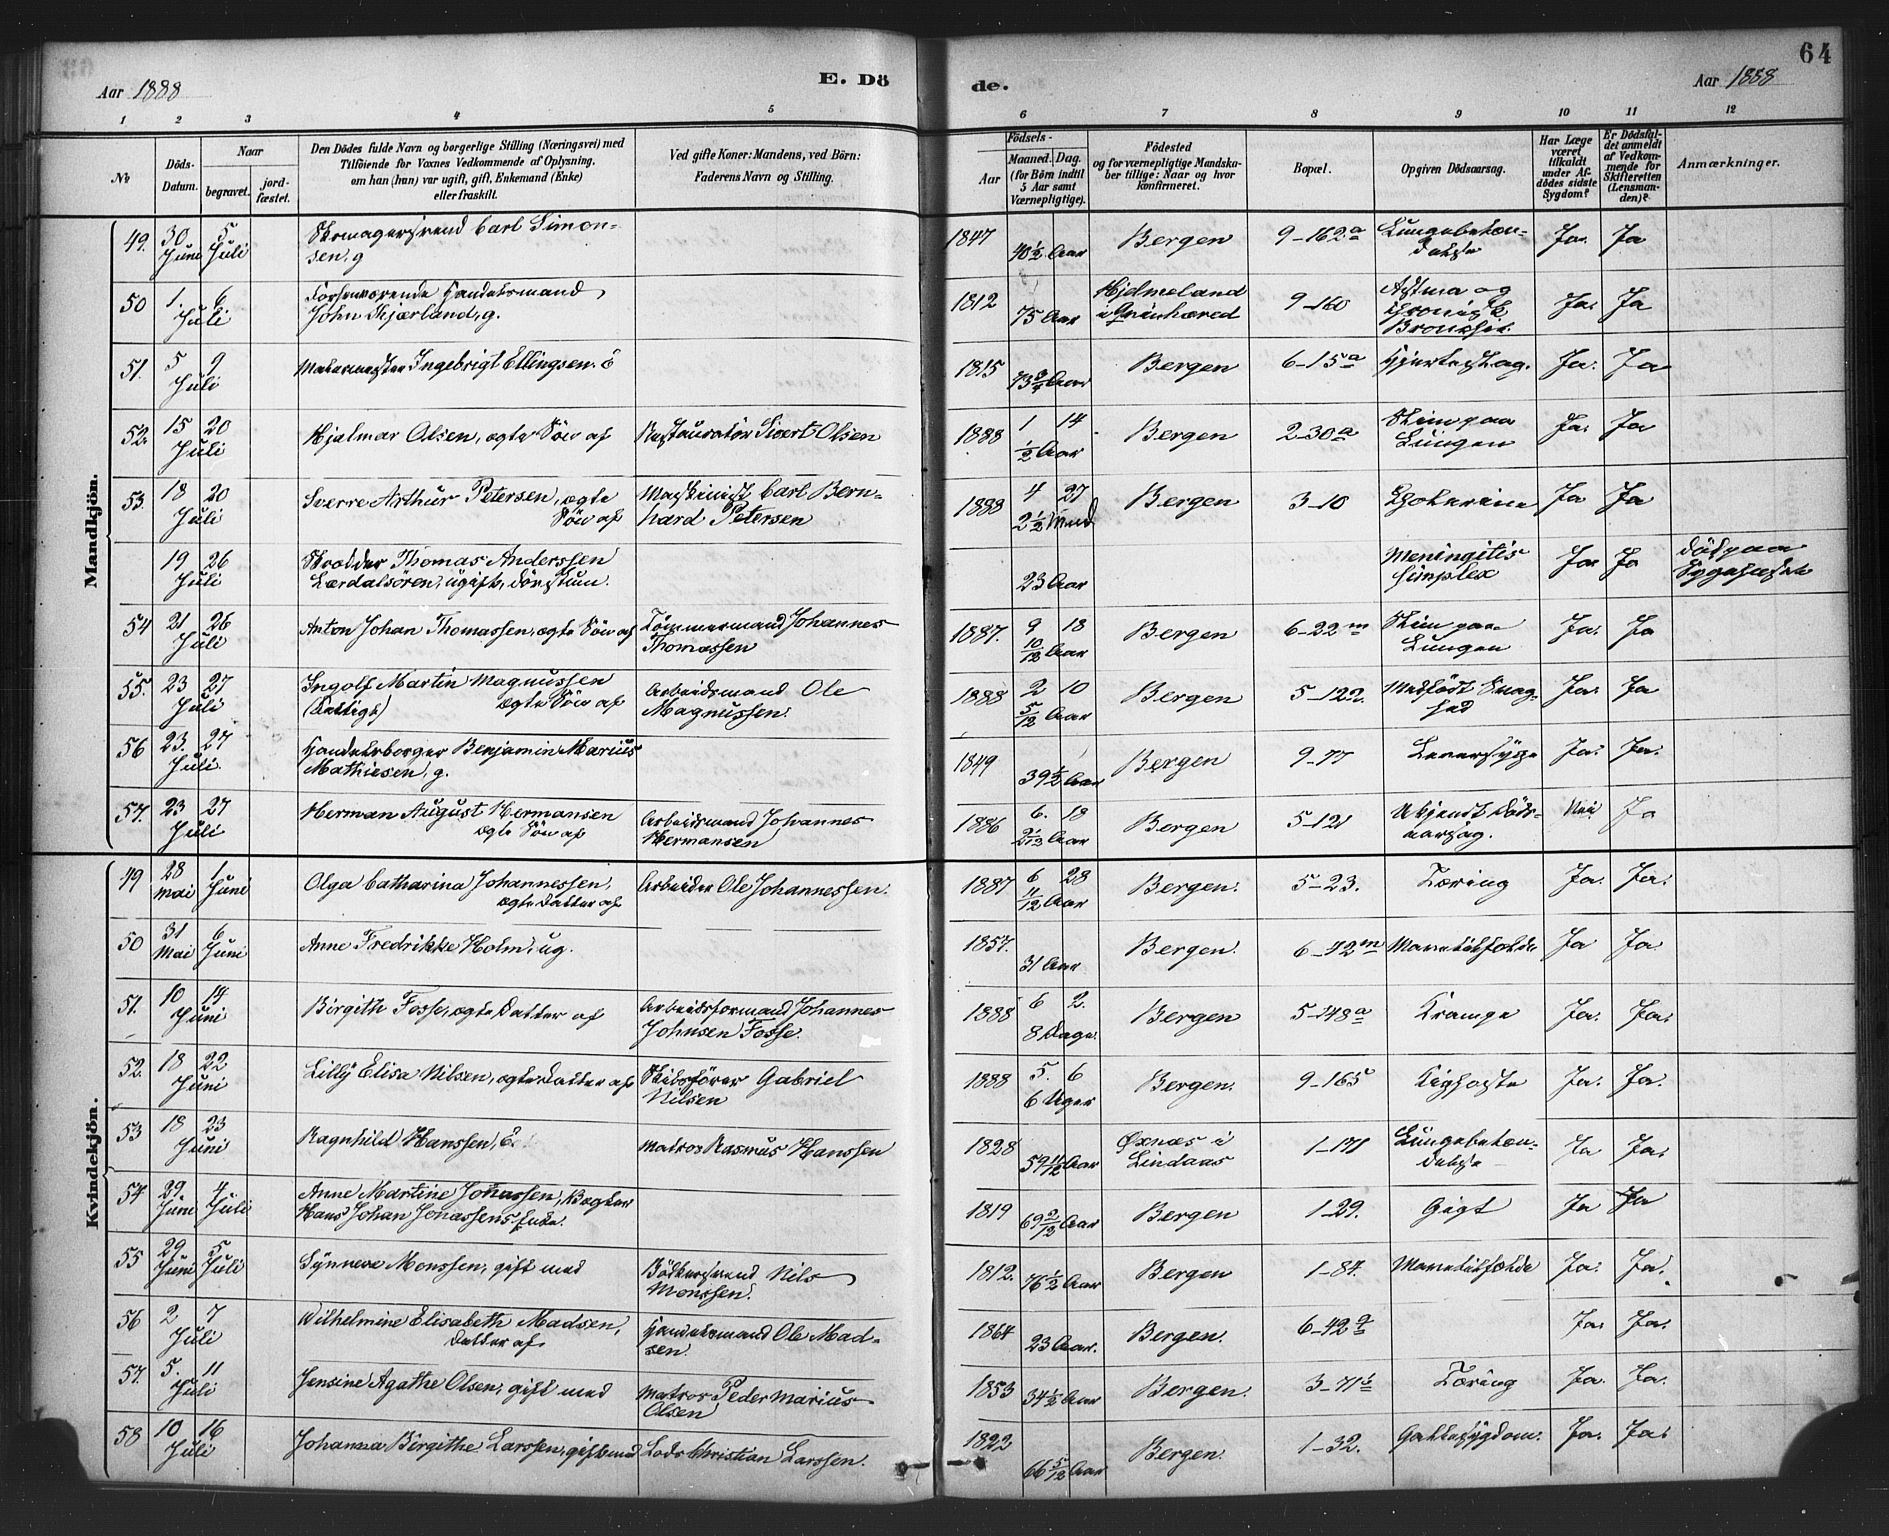 64
Aar 1888
E. Dö
de.
Aar 1888
1 2 3 4 5 6 7 8 9 10 11 12
№
Döds-
Datum.
Naar
begravet.
jord-
fæstet.
Den Dödes fulde Navn og borgerlige Stilling (Næringsvei) med
Tilföiende for Voxnes Vedkommende af Oplysning,
om han (hun) var ugift, gift, Enkemand (Enke)
eller fraskilt.
Ved gifte Koner: Mandens, ved Börn:
Faderens Navn og Stilling.
Födsels-
Aar
Maaned. Dag.
(for Börn indtil
5 Aar samt
Værnepligtige).
Födested
og for værnepligtige Mandska-
ber tillige: Naar og hvor
konfirmeret.
Bopæl.
Opgiven Dödsaarsag.
Har Læge
været
tilkaldt
under Af-
dödes sidste
Sygdom?
Er Dödsfal-
det anmeldt
af Vedkom-
mende for
Skifteretten
(Lensman-
den)?
Anmærkninger.
Mandkjön.
49. 30 Juni 5 Juli Skomagersvend Carl Simon-
sen, g 1847 40 1/2 Aar Bergen 9-162 a Lungebetæn-
delse Ja. Ja
50 1. Juli 6 Forhenværende Handelsmand
John Skjærland, g. 1812 75 Aar Hjelmeland
i 9-160 Astma og
chronisk
Bronchit. Ja. Ja
51. 5 Juli 9 Malermester Ingebrigt Ellingsen. E 1815 73 3/4 Aar Bergen 6-15 a Hjerteslag. Ja. Ja
52. 15 Juli 20 Hjalmar Olsen, ægte Sön af Restauratör Sivert Olsen 1888 1 14 1/2 Aar Bergen 2-30 a Slim paa
Lungen Ja. Ja
53. 18 Juli 20 Sverre Arthur Petersen, ægte
Sön af Maskinist Carl Bern-
hard Petersen 1888 4 27 2 1/2 Mnd Bergen 3-10 Cholerine Ja Ja
19 Juli 26 Skrædder Thomas Anderssen
Lærdalsören, ugift, 23 Aar Meningitis
simplex Ja Ja död paa
Sygehuset
54 21 Juli 26 Anton Johan Thomassen, ægte Sön af Tömmermand Johannes
Thomassen 1887. 9 18 10/12 Aar Bergen 6-22 m Slim paa
Lungen Ja. Ja
55. 23 Juli 27 Ingolf Martin Magnussen
ægte Sön af Arbeidsmand Ole
Magnussen. 1888 2 10 5/12 Aar Bergen 5-122. Medfödt Svag-
hed Ja. Ja
56 23. Juli 27 Handelsborger Benjamin Marius
Mathiesen, g. 1849 39 Aar Bergen 9-77 Leversyge Ja. Ja.
57. 23 Juli 27 Herman August Hermansen
ægte Sön af Arbeidsmand Johannes
Hermansen 1886 6. 18 2 1/12 Aar Bergen 5-121 Ukjendt Döds-
aarsag. Nei Ja
Kvindekjön.
49 28 Mai 1 Juni Olga Catharina Johannessen,
ægte Datter af Arbeider Ole Johannessen. 1887 6 28 11/12 Aar Bergen. 5-23. Tæring Ja. Ja.
50 31 Mai 6 Juni Anne Fredrikke Holm, ug. 1857. 31 Aar Bergen. 6-72 m Mavetilfælde Ja Ja.
51. 10 Juni 14 Birgith Fosse, ægte Datter af Arbeidsformand Johannes
Johnsen Fosse. 1888 6 2. 8 Dage. Bergen 5-148 a Krampe Ja. Ja.
52. 18 Juni 22 Lilly Elisa Nilsen, ægte Datter af Skibsförer Gabriel
Nilsen 1888 5. 6 6 Uger Bergen. 9-165 Kighoste Ja. Ja.
53 18 Juni 23 Ragnhild Hanssen, E. Matros Rasmus Hanssen 1828 59 11/12 Aar Øxnæs i
Lindaas 1-171 Lungebetæn-
delse Ja Ja.
54 29 Juni 4 Juli Anne Martine Jonassen, Vægter
Hans Johan Jonassens Enke. 1819 69 2/12 Aar Bergen 1-29. Gigt Ja Ja
55 29 Juni 5 Juli Synneve Monssen, gift med Bödkersvend Nils
Monssen. 1812. 76 1/2 Aar Bergen 1-84. Mavetilfælde Ja. Ja.
56 2 Juli 7 Wilhelmine Elisabeth Madsen,
Datter af Handelsmand Ole Mad-
sen. 1864 23 Aar. Bergen. 6-42 Ja. Ja.
57. 5. Juli 11 Jensine Agathe Olsen, gift med Matros Peder Marius
Olsen 1853 34 1/2 Aar Bergen. 3-71 Tæring Ja. Ja.
58 10 Juli 16 Johanna Birgithe Larssen, gift med Lods Christian Larssen. 1822 66 5/12 Aar Bergen. 1-32. Galdesygdom. Ja. Ja.